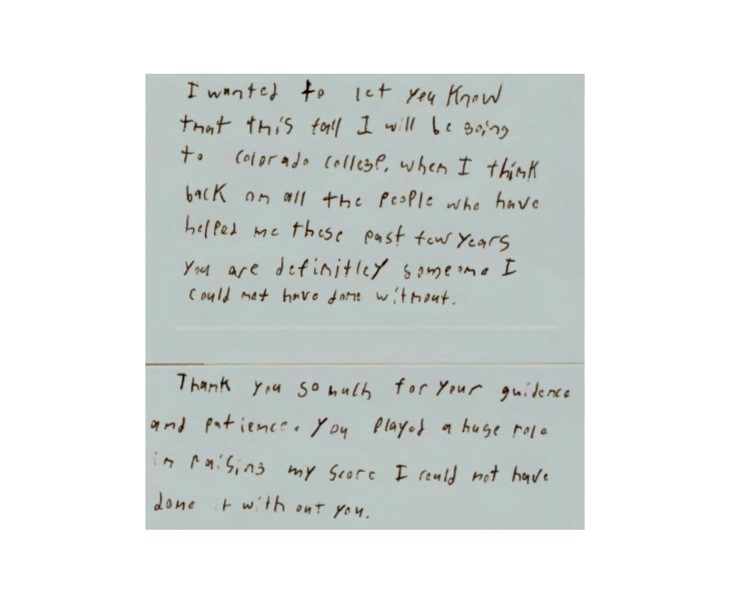 I wanted to let you know
that this fall I will be going
to Colorado College. when I think
back on all the people who have
helped me these past few years
you are definitley someone I
could not have done without.
Thank you so much for your guidence
and patience. You played a huge role
in raising my score I could not have
done it with out you.